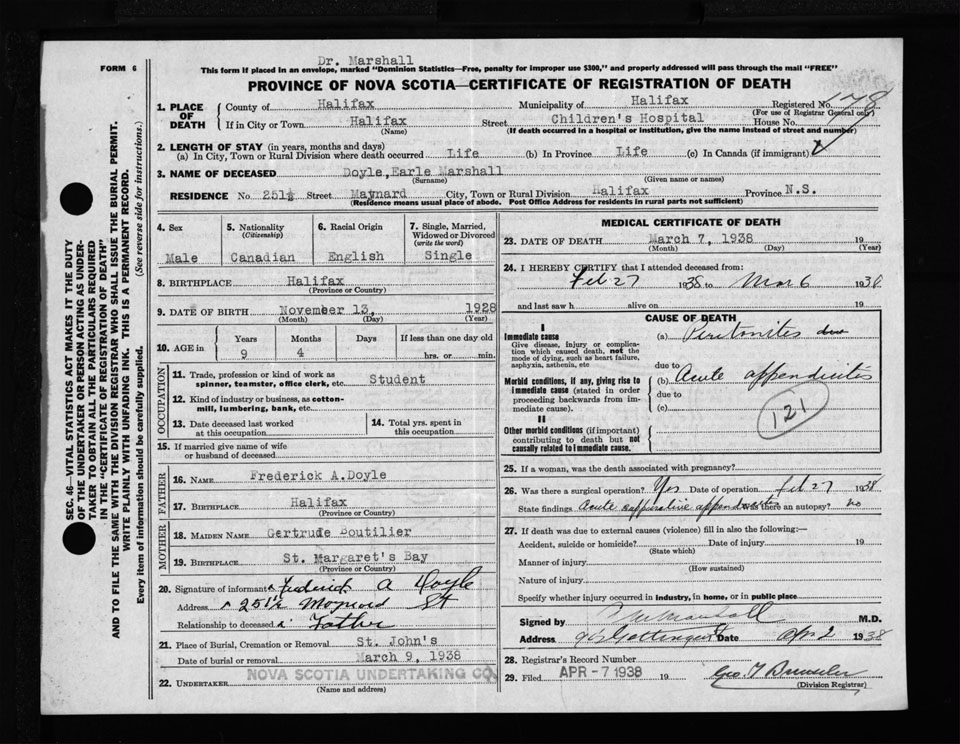 Dr. Marshall
FORM 6
This form if placed in an envelope, marked "Dominion Statistics—Free, penalty for improper use $300," and properly addressed will pass through the mail "FREE"
PROVINCE OF NOVA SCOTIA—CERTIFICATE OF REGISTRATION OF DEATH
1. PLACE OF DEATH
County of Halifax Municipality of Halifax Registered No. 178
(For use of Registrar General only)
If in City or Town Halifax Street Children's Hospital House No.
(Name) (If death occurred in a hospital or institution, give the name instead of street and number)
2. LENGTH OF STAY (in years, months and days)
(a) In City, Town or Rural Division where death occurred Life (b) In Province Life (c) In Canada (if immigrant)
3. NAME OF DECEASED Doyle, Earle Marshall
(Surname) (Given name or names)
RESIDENCE No. 251½ Street Maynard City, Town or Rural Division Halifax Province N.S.
(Residence means usual place of abode. Post Office Address for residents in rural parts not sufficient)
4. Sex
Male
5. Nationality
(Citizenship)
Canadian
6. Racial Origin
English
7. Single, Married, Widowed or Divorced
(write the word)
Single
8. BIRTHPLACE Halifax
(Province or Country)
9. DATE OF BIRTH November 13, 1928
(Month) (Day) (Year)
10. AGE in
Years Months Days If less than one day old
9 4 hrs. or min.
OCCUPATION
11. Trade, profession or kind of work as spinner, teamster, office clerk, etc. Student
12. Kind of industry or business, as cotton-mill, lumbering, bank, etc.
13. Date deceased last worked at this occupation
14. Total yrs. spent in this occupation
15. If married give name of wife or husband of deceased
FATHER
16. NAME Frederick A. Doyle
17. BIRTHPLACE Halifax
(Province or Country)
MOTHER
18. MAIDEN NAME Gertrude Boutilier
19. BIRTHPLACE St. Margaret's Bay
(Province or Country)
20. Signature of informant Frederick A Doyle
Address 251½ Maynard St
Relationship to deceased Father
21. Place of Burial, Cremation or Removal St. John's
Date of burial or removal March 9, 1938
22. UNDERTAKER NOVA SCOTIA UNDERTAKING CO.
(Name and address)
MEDICAL CERTIFICATE OF DEATH
23. DATE OF DEATH March 7, 1938 19
(Month) (Day) (Year)
24. I HEREBY CERTIFY that I attended deceased from:
Feb 27 1938 to Mar 6 1938
and last saw h alive on 19
CAUSE OF DEATH
I
Immediate cause
Give disease, injury or complication which caused death, not the mode of dying, such as heart failure, asphyxia, asthenia, etc
(a) Peritonites due
due to
Morbid conditions, if any, giving rise to immediate cause (stated in order proceeding backwards from immediate cause).
(b) Acute appendicitis
due to
(c)
121
II
Other morbid conditions (if important) contributing to death but not causally related to immediate cause.
25. If a woman, was the death associated with pregnancy?
26. Was there a surgical operation? Yes Date of operation Feb 27 1938
State findings Acute suppurative appendicitis Was there an autopsy? no
27. If death was due to external causes (violence) fill in also the following:—
Accident, suicide or homicide? Date of injury 19
(State which)
Manner of injury
(How sustained)
Nature of injury
Specify whether injury occurred in industry, in home, or in public place
Signed by M.D.
Address Gottingen St Date Apr 2 1938
28. Registrar's Record Number
29. Filed APR - 7 1938 19 Geo. T
(Division Registrar)
SEC. 46—VITAL STATISTICS ACT MAKES IT THE DUTY
OF THE UNDERTAKER OR PERSON ACTING AS UNDER-
TAKER TO OBTAIN ALL THE PARTICULARS REQUIRED
IN THE "CERTIFICATE OF REGISTRATION OF DEATH"
AND TO FILE THE SAME WITH THE DIVISION REGISTRAR WHO SHALL ISSUE THE BURIAL PERMIT.
WRITE PLAINLY WITH UNFADING INK. THIS IS A PERMANENT RECORD.
Every item of information should be carefully supplied. (See reverse side for instructions.)